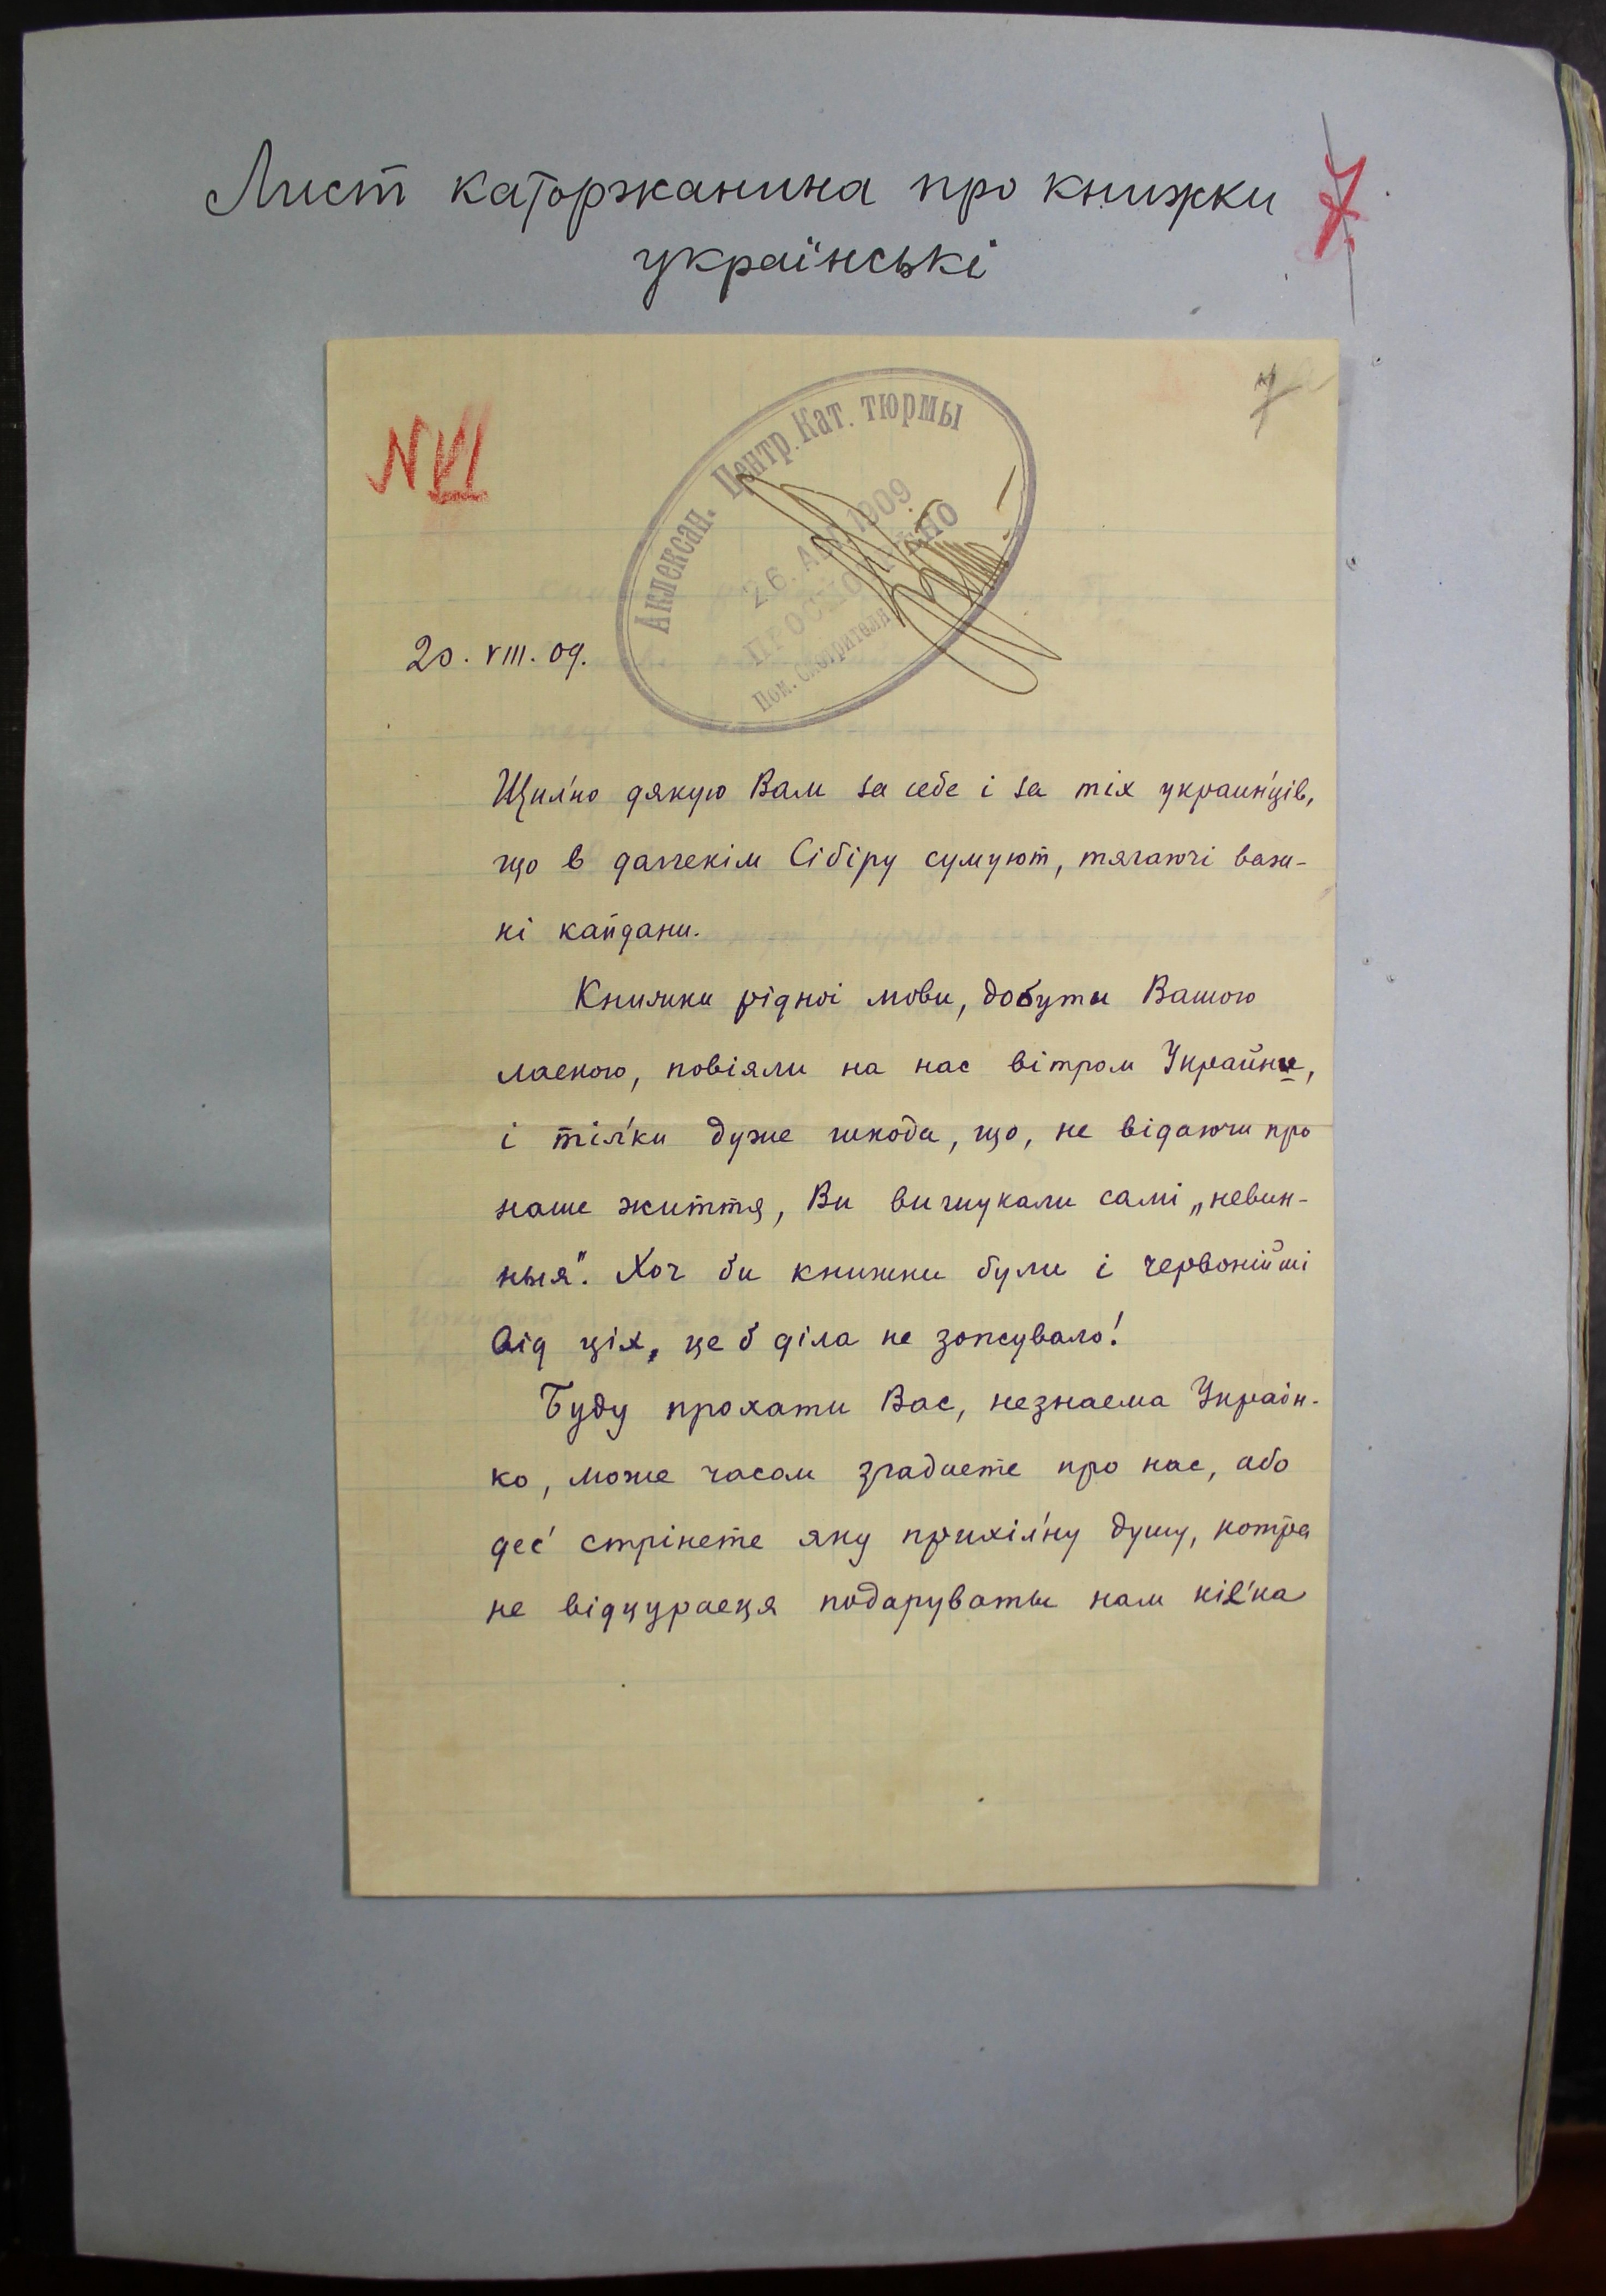 Лист каторжанина про книжки
українські
7
7
N VI
Александ. Центр. Кат. тюрмы
26. Авг 1909
ПРОСМОТРѢНО
Пом. Смотрителя
20. VIII. 09.
Щил'но дякую Вам за себе і за тіх украин'ців,
що в далекім Сібіру сумуют, тягаючі важ-
кі кайдани.
Книжки рідноі мови, добути Вашою
ласкою, повіяли на нас вітром Украйни,
і тіл'ки дуже шкода, що, не відаючи про
наше життя, Ви вишукали самі „невин-
ныя". Хоч би книжки були і червонійші
від ціх, це б діла не зопсувало!
Буду прохати Вас, незнаема Украін-
ко, може часом згадаете про нас, або
дес' стрінете яку прихіл'ну душу, котра
не відцураеця подарувати нам кіл'ка